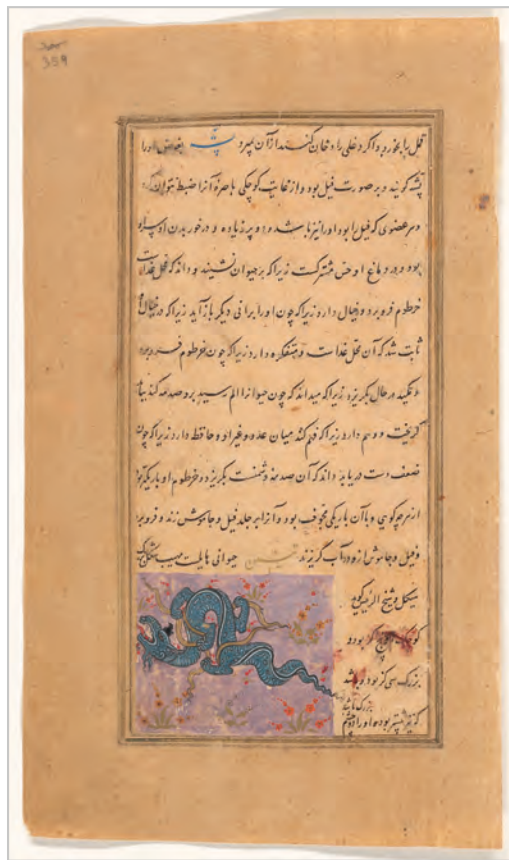 359
قمل را بخورد و اگر دخلی را دخان کنند از آن بمیرد پشه بعوض او را
پشه گویند و بر صورت فیل بود و از غایت کوچکی باصره آنرا ضبط نتوان کرد
و هر عضوی که فیل را بود او را نیز باشد و دو پر زیاده و در خوردن
بود و در دماغ او حس مشترکست زیرا که بر حیوان نشیند و داند که محل غذاست
خرطوم فرو برد و خیال دارد زیرا که چون او را برانی دیگر باز آید زیرا که در خیال او
ثابت شد که آن محل غذا است و متفکره دارد زیرا که چون خرطوم فرو برد
در حال بگریزد زیرا که میداند که چون حیوان را الم رسید برو صدمه کند
گریخت و وهم دارد زیرا که فهم کند میان عدو و غیر او و حافظه دارد زیرا که چون
ضعف دست دریابد داند که آن صدمه بگریزد و خرطوم او باریکتر
از هر موئی و با آن باریکی مجوف بود و آنرا بر جلد فیل و جاموش زند و فرو برد
و فیل و جاموش ازو در آب گریزند تنین حیوانی هایلست مهیب شکل
هیکل و شیخ الرئیس گوید
کوچک گز بود و
بزرگ سی گز بود و باشد
بزرگ باشد
که بیشتر بود و او را دو چشم